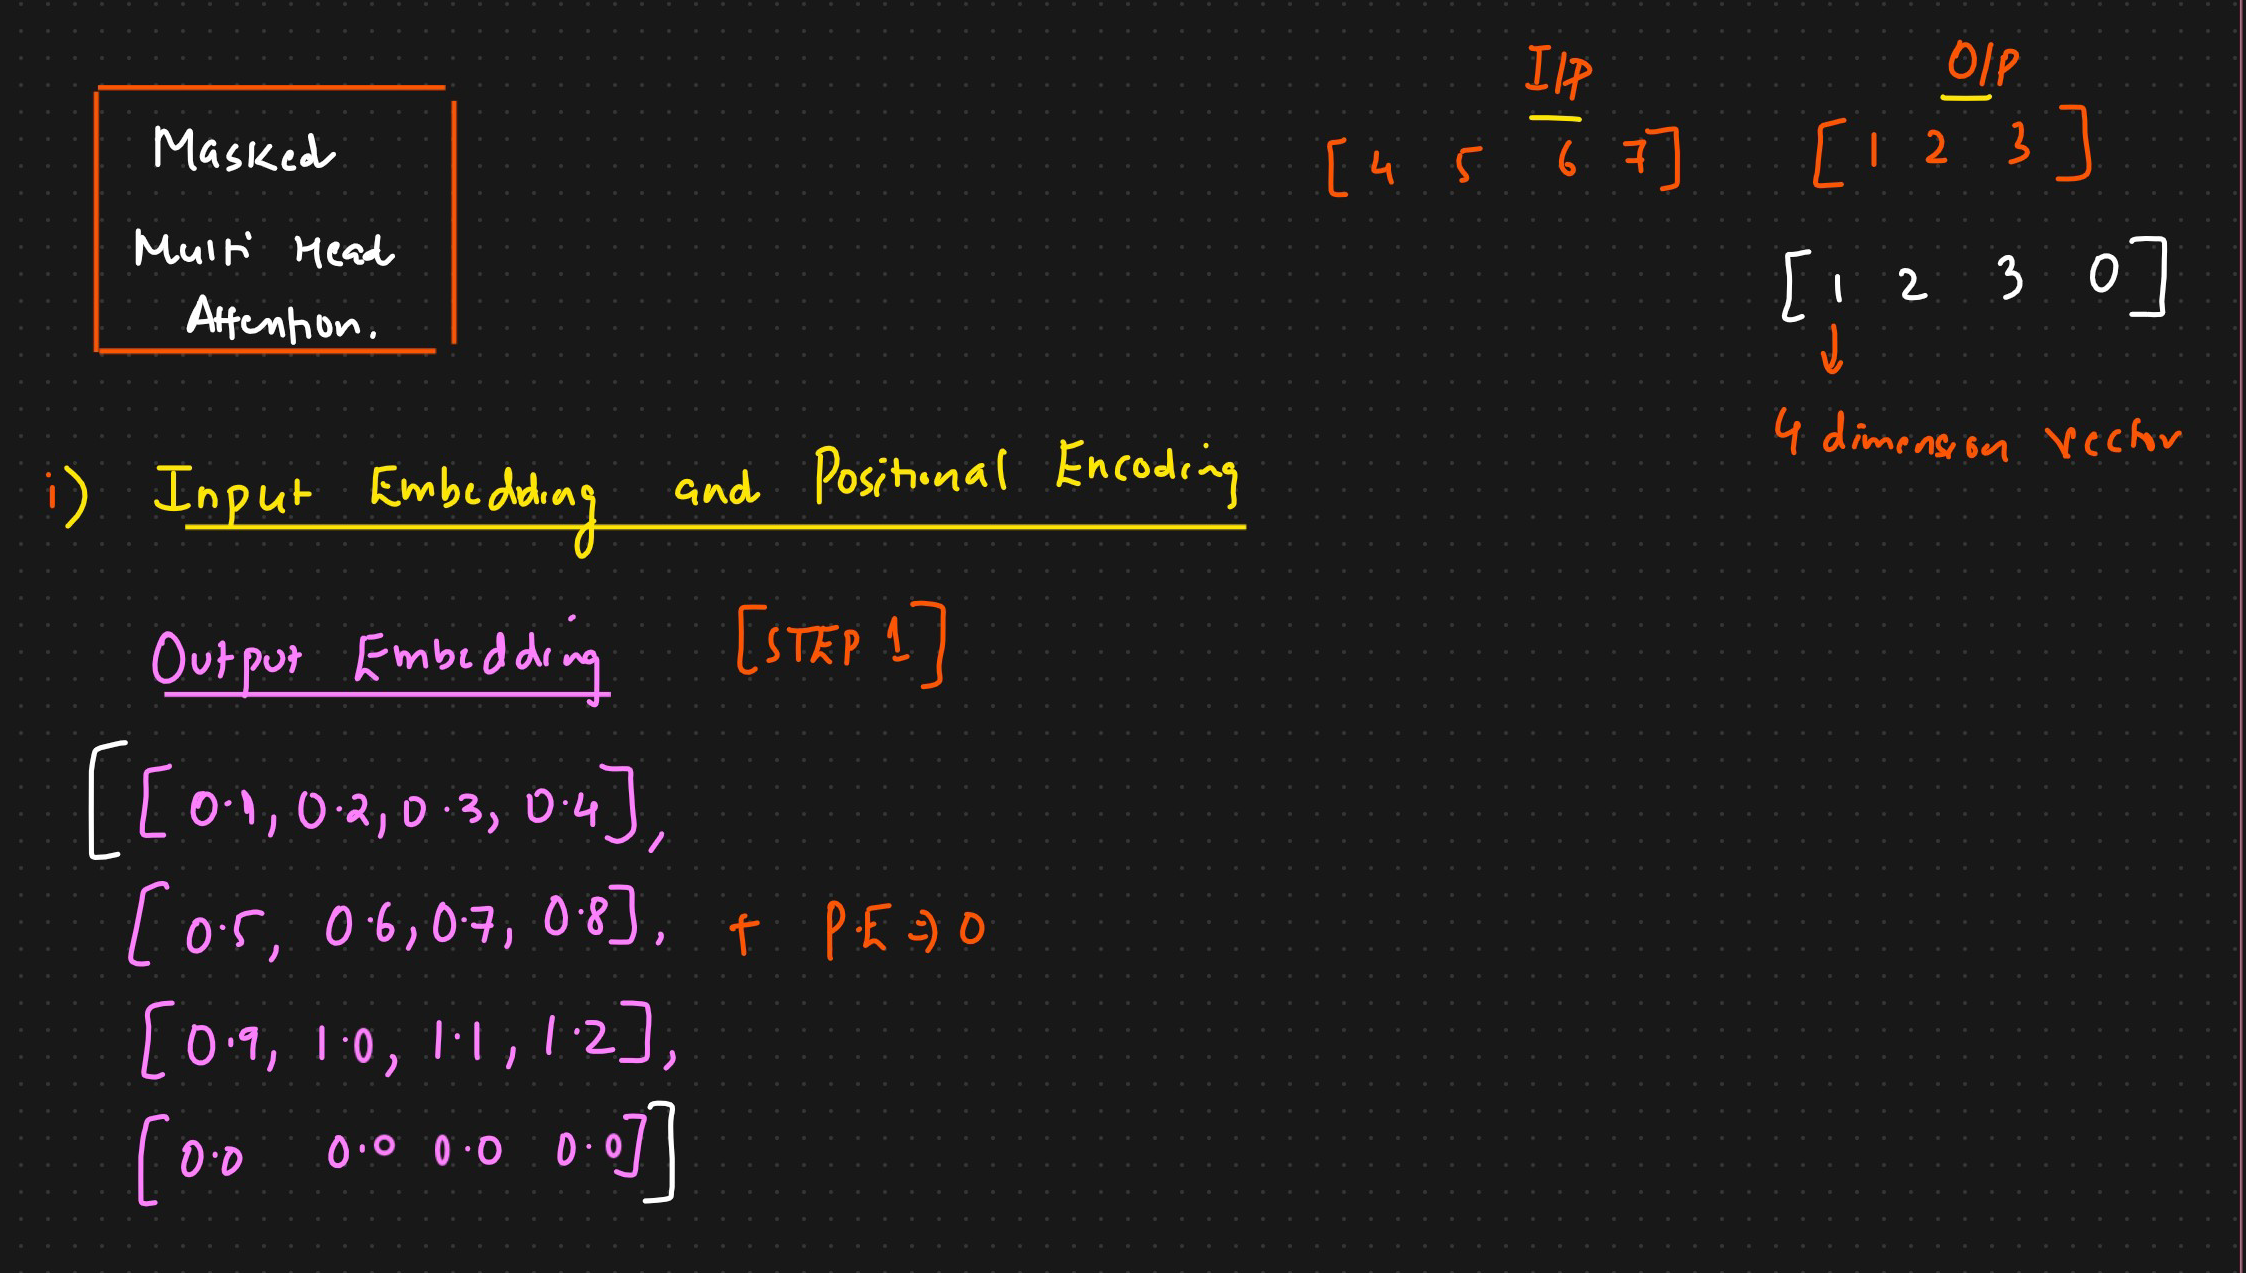 I/P
O/P
[ 4 5 6 7 ]
[ 1 2 3 ]
Masked
Multi Head
Attention.
[ 1 2 3 0 ]
↓
4 dimension vector
i) Input Embedding and Positional Encoding
Output Embedding [STEP 1]
[ [ 0.1, 0.2, 0.3, 0.4 ],
[ 0.5, 0.6, 0.7, 0.8 ], + P.E ⇒ 0
[ 0.9, 1.0, 1.1, 1.2 ],
[ 0.0 0.0 0.0 0.0 ] ]